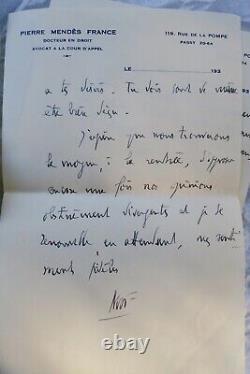 PIERRE MENDÈS FRANCE
DOCTEUR EN DROIT
AVOCAT A LA COUR D'APPEL
119, RUE DE LA POMPE
PASSY 20-64
LE 193
a tes désirs. Tu dois tout de même
être bien déçu.
J'espère que nous trouverons
le moyen, à la rentrée, d'opposer
encore une fois nos opinions
obstinément divergentes et je te
renouvelle en attendant, mes senti
ments fidèles